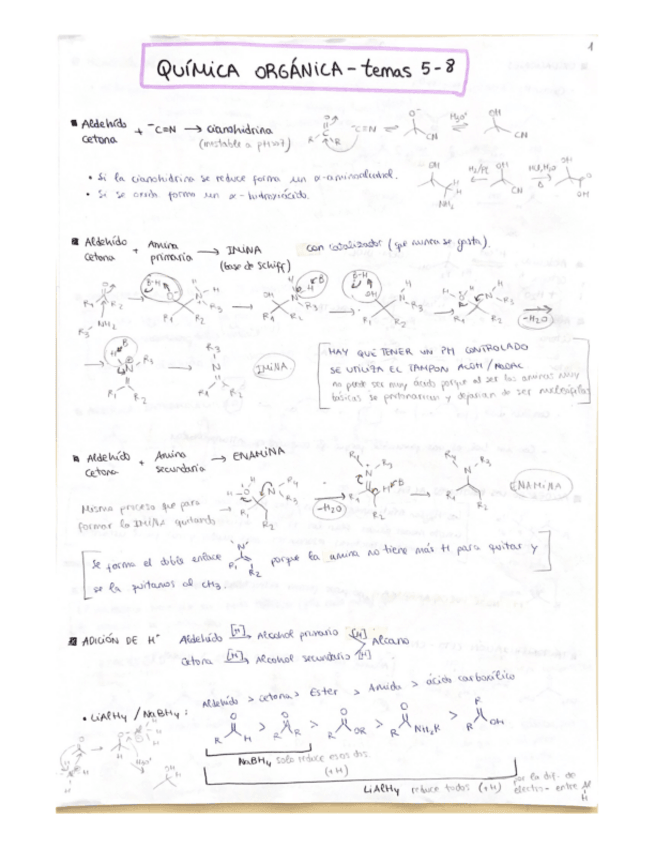 1
QUÍMICA ORGÁNICA - temas 5-8
▪ Aldehído
cetona
+ ⁻C≡N → cianohidrina
(inestable a pH≥7)
• Si la cianohidrina se reduce forma un α-aminoalcohol.
• Si se oxida forma un α-hidroxiácido.
▪ Aldehído
cetona
+ Amina
primaria
→ IMINA
(base de Schiff)
con catalizador (que nunca se gasta).
-H₂O
IMINA
HAY QUE TENER UN PH CONTROLADO
SE UTILIZA EL TAMPON ACOH / NaOAC
no puede ser muy ácido porque al ser las aminas muy
básicas se protonarían y dejarían de ser nucleófilas
▪ Aldehído
cetona
+ Amina
secundaria
→ ENAMINA
Mismo proceso que para
formar la IMINA quitando
-H₂O
ENAMINA
Se forma el doble enlace
porque la amina no tiene más H para quitar y
se la quitamos al CH₃.
▪ ADICIÓN DE H⁻
Aldehído [H]→ Alcohol primario [H]
Alcano
Cetona [H]→ Alcohol secundario [H]
• LiAlH₄ / NaBH₄:
Aldehído > cetona > Ester > Amida > ácido carboxílico
NaBH₄ solo reduce esos dos
(+H)
LiAlH₄ reduce todos (+H)
por la dif. de
electro- entre Al
H